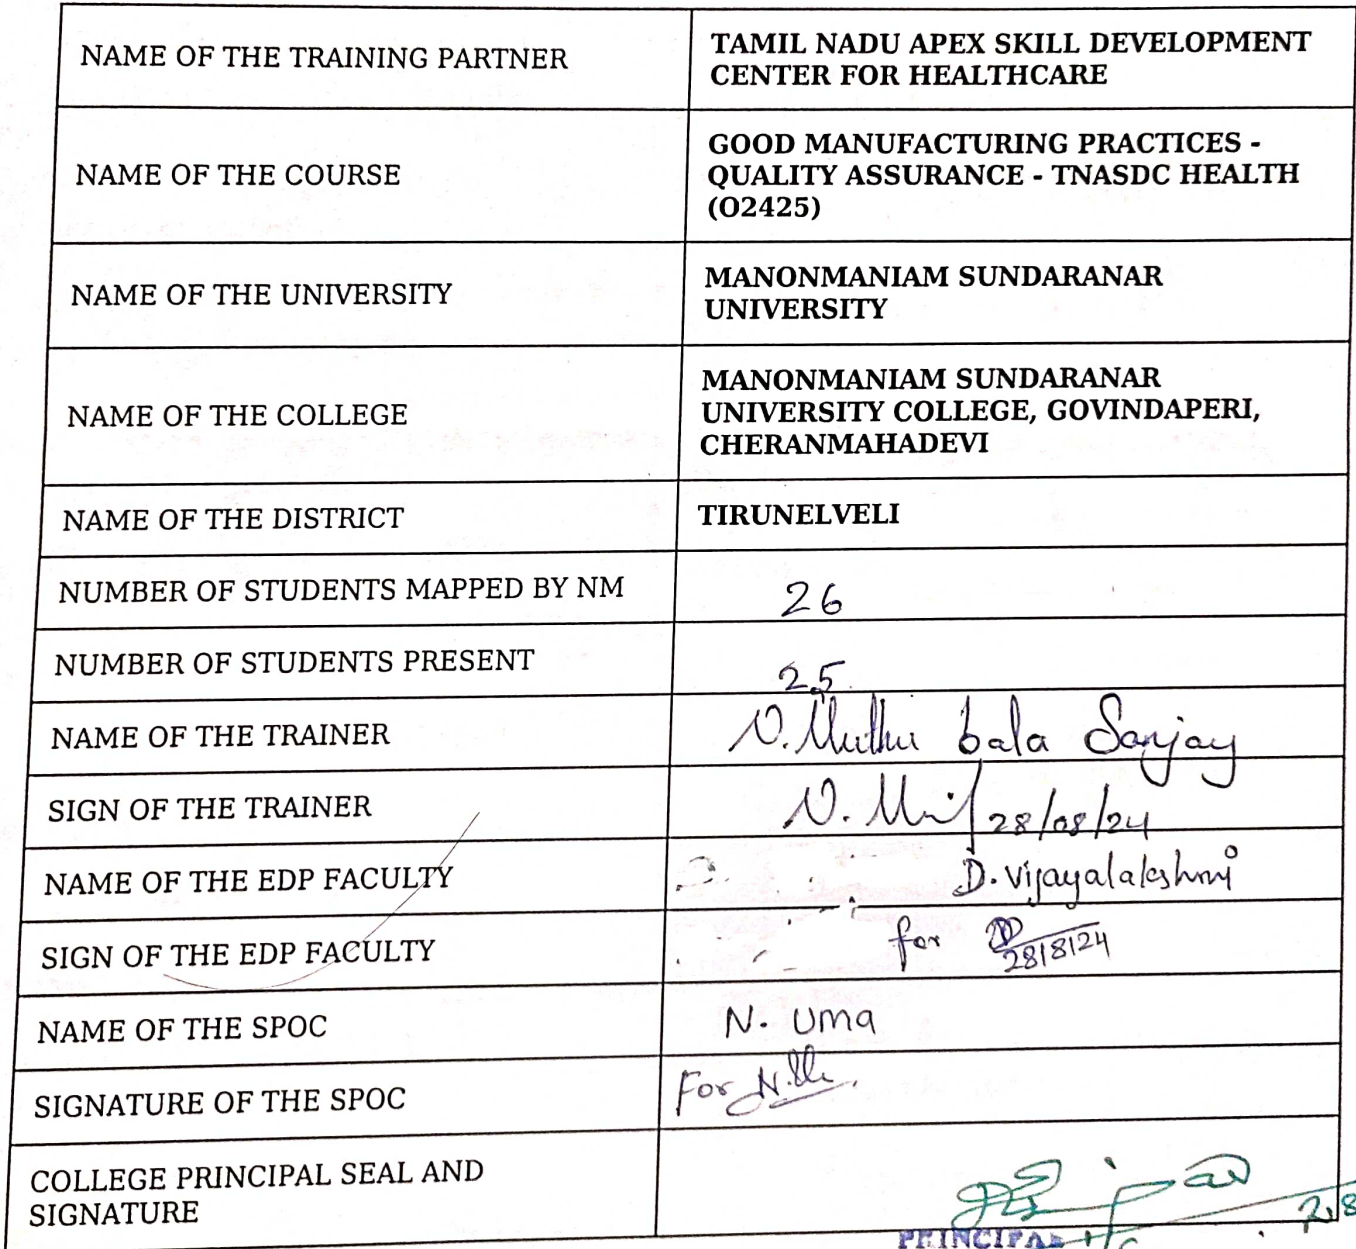 NAME OF THE TRAINING PARTNER
TAMIL NADU APEX SKILL DEVELOPMENT
CENTER FOR HEALTHCARE
NAME OF THE COURSE
GOOD MANUFACTURING PRACTICES -
QUALITY ASSURANCE - TNASDC HEALTH
(O2425)
NAME OF THE UNIVERSITY
MANONMANIAM SUNDARANAR
UNIVERSITY
NAME OF THE COLLEGE
MANONMANIAM SUNDARANAR
UNIVERSITY COLLEGE, GOVINDAPERI,
CHERANMAHADEVI
NAME OF THE DISTRICT
TIRUNELVELI
NUMBER OF STUDENTS MAPPED BY NM
26
NUMBER OF STUDENTS PRESENT
25
NAME OF THE TRAINER
N. Muthu bala Sanjay
SIGN OF THE TRAINER
28/08/24
NAME OF THE EDP FACULTY
D. Vijayalakshmi
SIGN OF THE EDP FACULTY
for
28/8/24
NAME OF THE SPOC
N. Uma
SIGNATURE OF THE SPOC
For
COLLEGE PRINCIPAL SEAL AND
SIGNATURE
PRINCIPAL